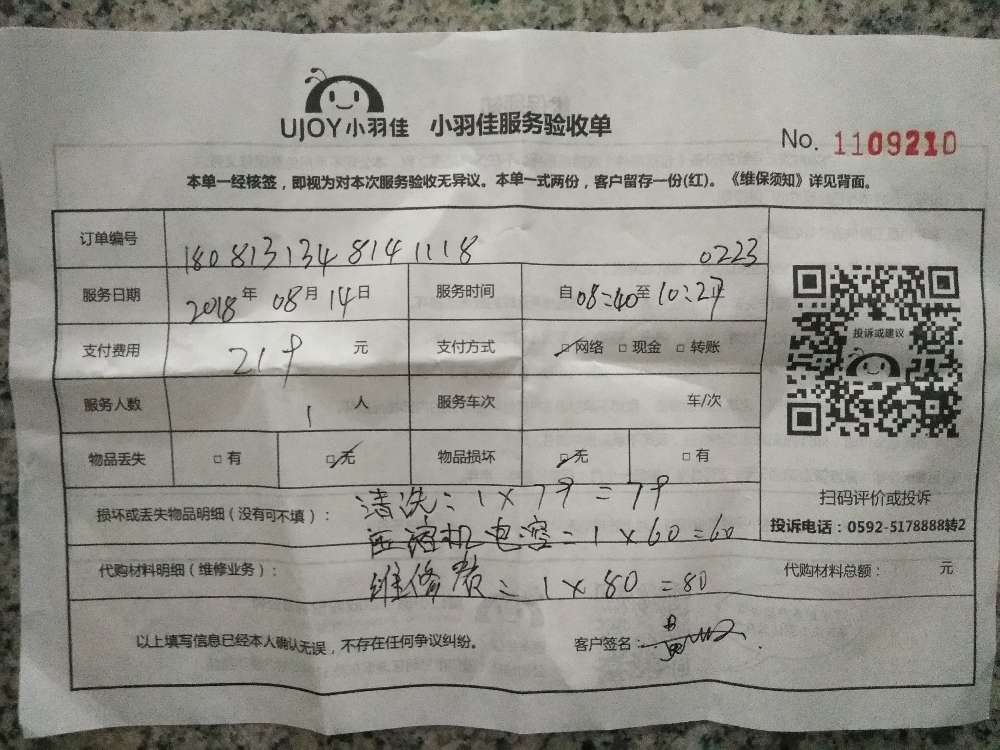 UJOY小羽佳 小羽佳服务验收单
No. 1109210
本单一经核签，即视为对本次服务验收无异议。本单一式两份，客户留存一份(红)。《维保须知》详见背面。
订单编号 180813134 814 1118 0223
服务日期 2018年 08月 14日 服务时间 自08:40至10:29
支付费用 219 元 支付方式 □网络 □现金 □转账
服务人数 1 人 服务车次 车/次
物品丢失 □有 □无 物品损坏 □无 □有
投诉或建议
扫码评价或投诉
投诉电话：0592-5178888转2
清洗：1×79=79
损坏或丢失物品明细（没有可不填）：
压缩机电容=1×60=60
代购材料明细（维修业务）： 代购材料总额： 元
维修费=1×80=80
以上填写信息已经本人确认无误，不存在任何争议纠纷。 客户签名：